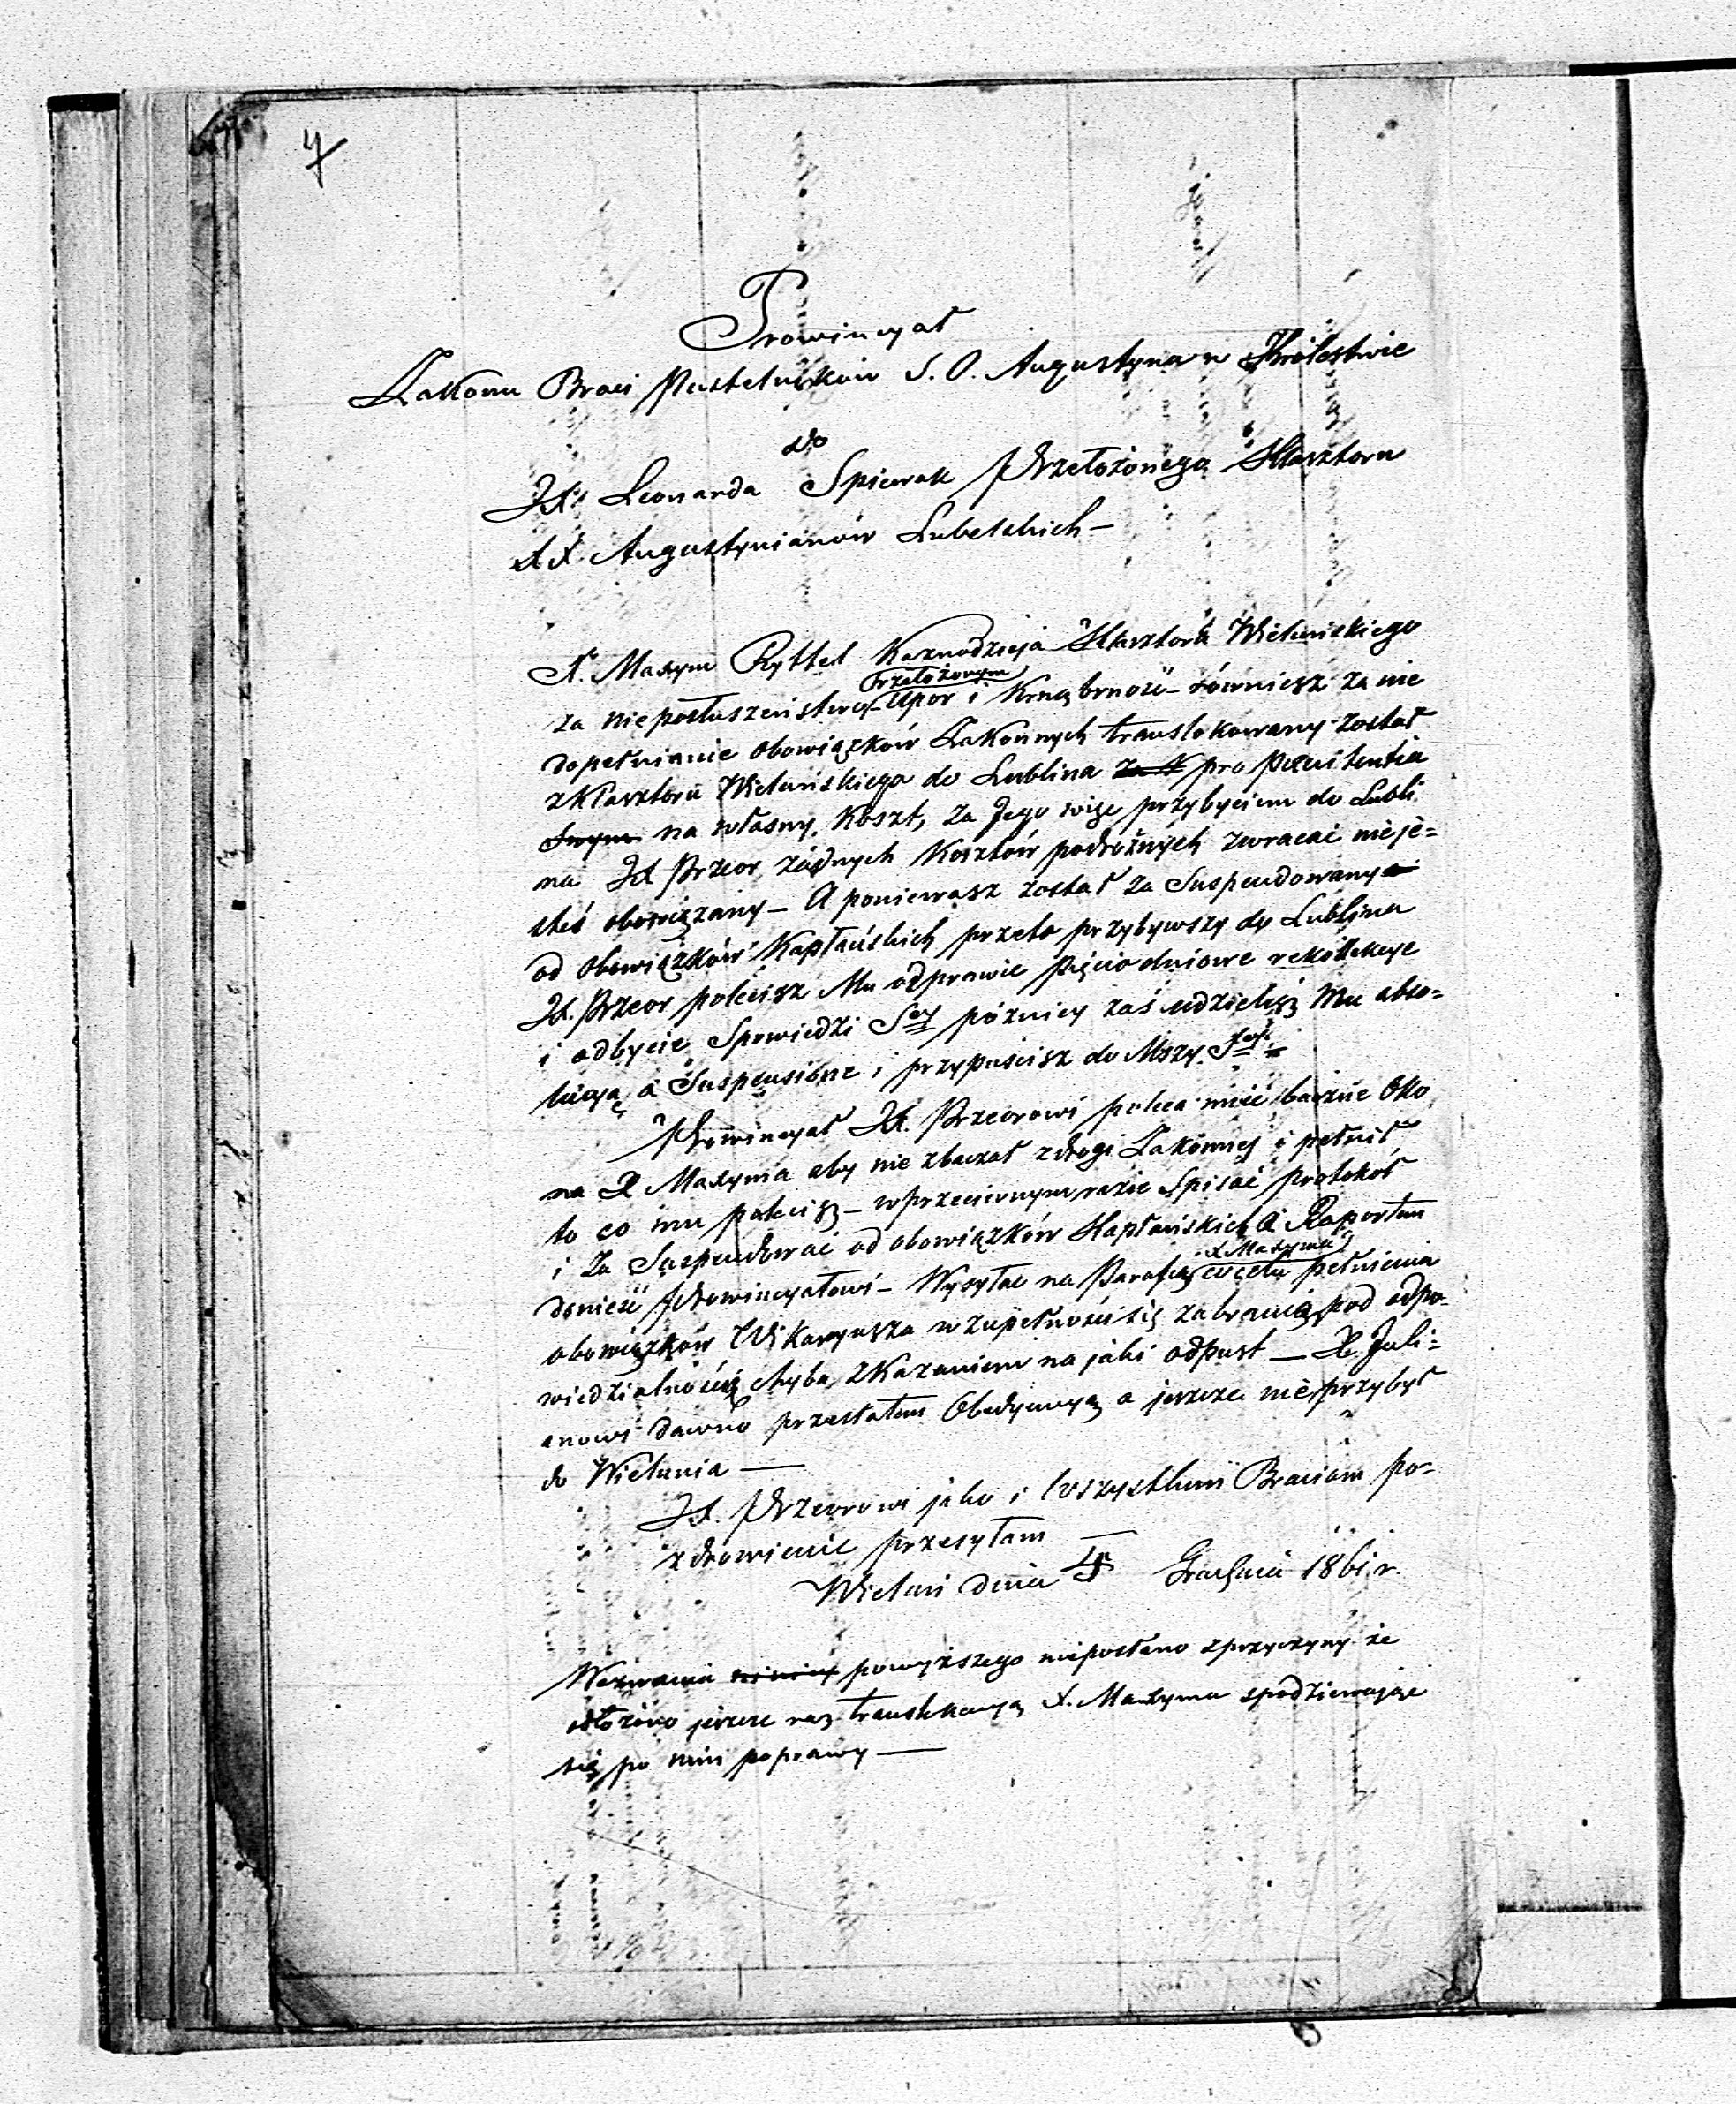 7
Prowincyał
Zakonu Braci Pustelników S. O. Augustyna w Królestwie
do
JX Leonarda Spiewak Przełożonego Klasztoru
XX. Augustynianów Lubelskich —
X. Maxym Ryttel Kaznodzieja Klasztoru Wieluńskiego
Przełożonym
za nieposłuszeństwo Upor i Krnąbrność — równiesz za nie
dopełnianie obowiązków Zakonnych translokowany został
z Klasztoru Wieluńskiego do Lublina pro Poenitentia
na własny Koszt, za Jego więc przybyciem do Lubli
na JX Przeor żadnych Kosztów podróżnych zwracać nieje=
steś obowiązany — A poniewasz został za Suspendowany
od obowiązków Kapłańskich przeto przybywszy do Lublina
JX. Przeor polecisz Mu odprawie pięcio dniowe rekollekcye
i odbycie Spowiedzi Sey późniey zaś udzielisz Mu abso=
lucyą a Suspensione i przypuscisz do Mszy Stey.
Prowincyał JX. Przeorowi poleca mieć baczne Oko
na X Maxyma aby nie zbaczał z drogi Zakonnej i pełnił
to co mu polecisz — w przeciwnym razie Spisać protokół
i Za Suspendować od obowiązków Kapłańskich i Raportem
X. Maxyma
donieść Prowincyałowi — Wysyłać na Parafią w celu pełnienia
obowiązków Wikaryusza w zupełności się zabrania pod odpo-
wiedzialnością chyba z Kazaniem na jaki odpust — X. Juli=
anowi dawno przesłałem Obedyencyą a jeszcze nie przybył
do Wielunia —
JX. Przeorowi jako i Wszystkim Braciom po=
zdrowienie przesyłam —
Wieluń dnia Grudnia 1861 r.
Wezwania powyższego nieposłano z przyczyny że
odłożono jeszcze raz translokacyą X. Maxyma spodziewając
się po nim poprawy —